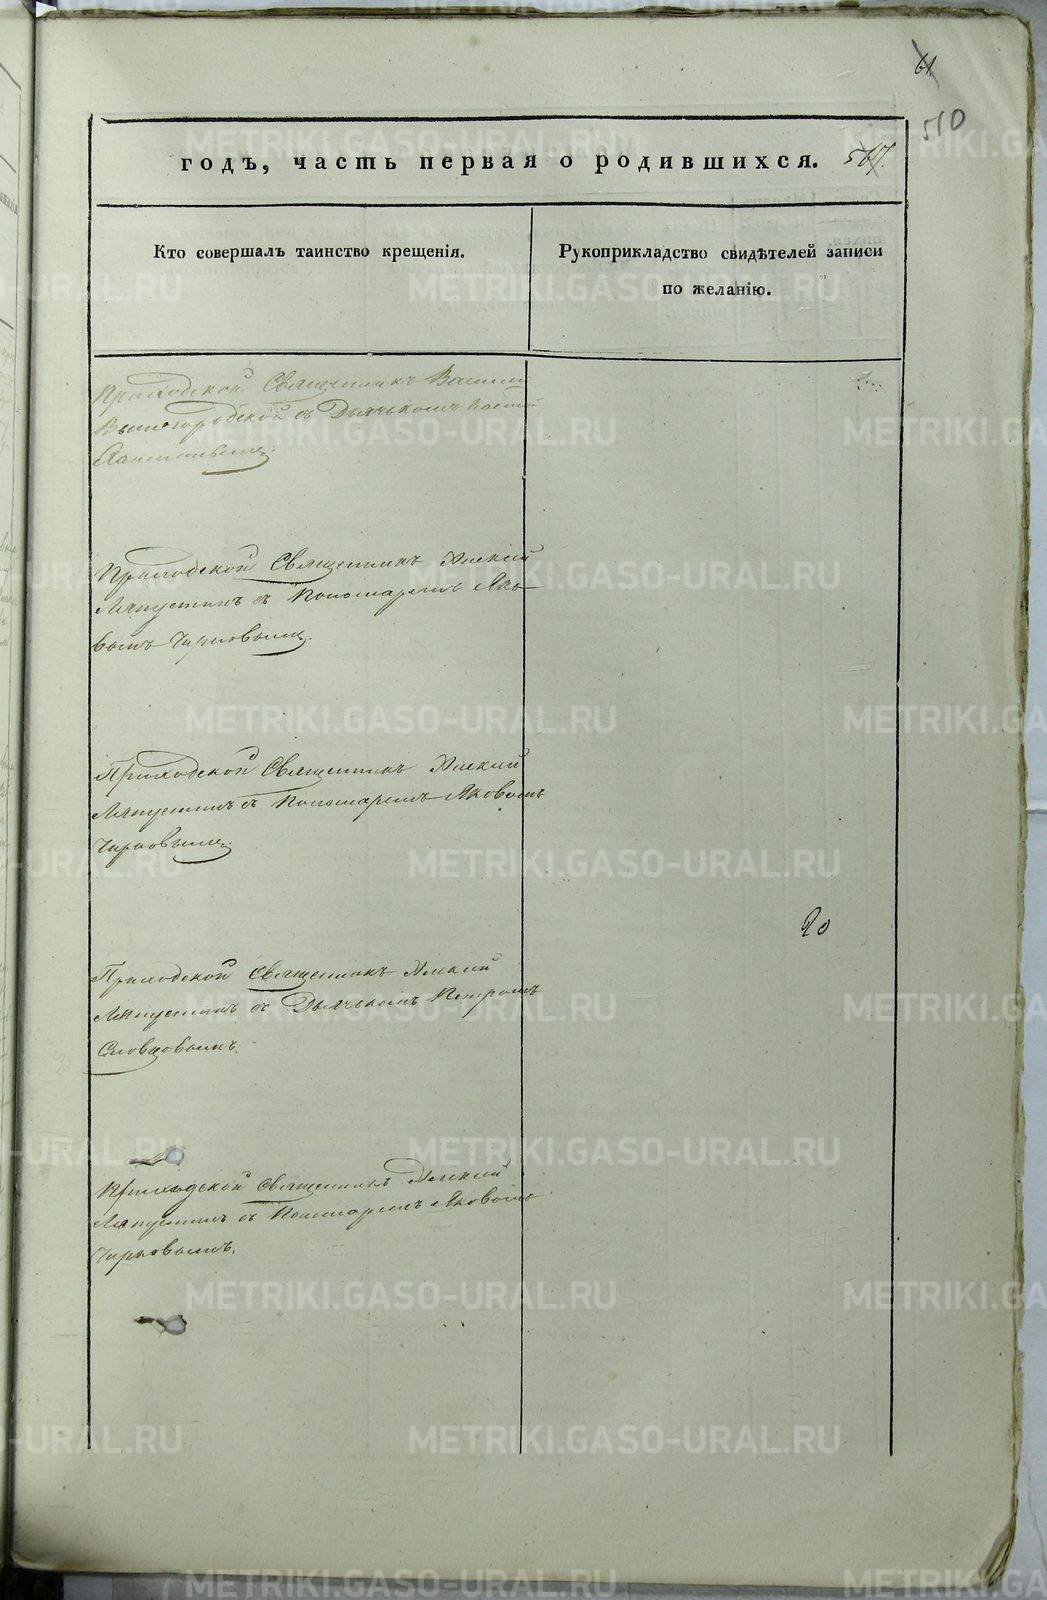 61
510
годъ, часть первая о родившихся. 517.
Кто совершалъ таинство крещенія.
Рукоприкладство свидѣтелей записи
по желанію.
Приходской Священникъ Василій
Вышегородской съ Дьячькомъ
Приходской Священникъ Алексій
Ляпустинъ съ Пономаремъ Яко-
вомъ Чирковымъ.
Приходской Священникъ Алексій
Ляпустинъ съ Пономаремъ Яковомъ
Чирковымъ.
20
Приходской Священникъ Алексій
Ляпустинъ съ Дьячькомъ Петромъ
Словцовымъ.
Приходской Священникъ Алексій
Ляпустинъ съ Пономаремъ Яковомъ
Чирковымъ.
METRIKI.GASO-URAL.RU